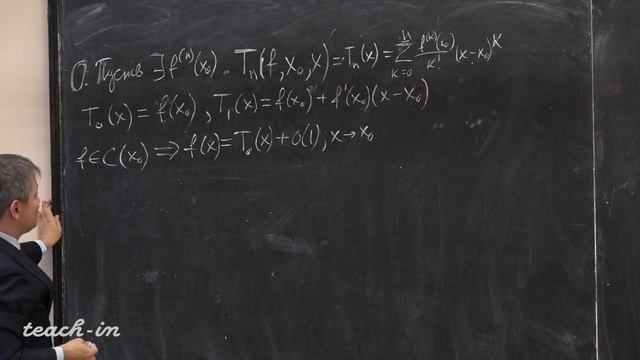 О. Пусть ∃ f⁽ⁿ⁾(x₀). Tₙ(f, x₀, x) = Tₙ(x) = ∑ₖ₌₀ⁿ f⁽ᵏ⁾(x₀)/k! (x-x₀)ᵏ
T₀(x) = f(x₀), T₁(x) = f(x₀) + f'(x₀)(x-x₀)
f∈C(x₀) ⟹ f(x) = T₀(x) + o(1), x→x₀
teach-in